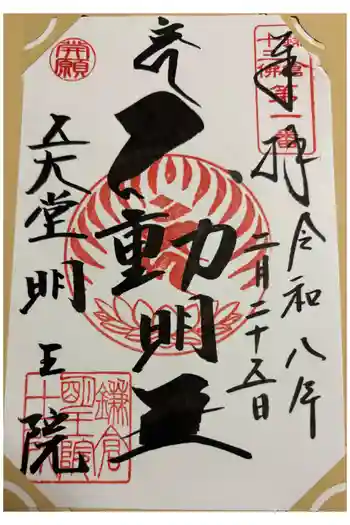 奉拝
令和八年
二月二十五日
不動明王
五大堂明王院
鎌倉
十三佛
第一番
開願
鎌倉
明王院